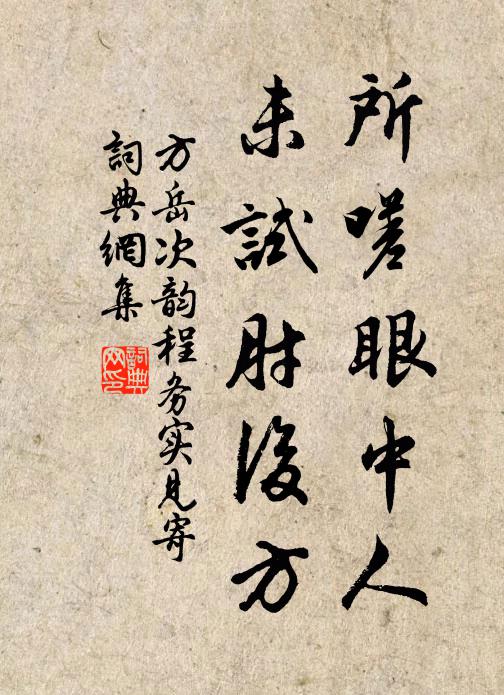 所嗟眼中人
未試肘後方
方岳次韵程务实见寄
詞典網集
詞典网印